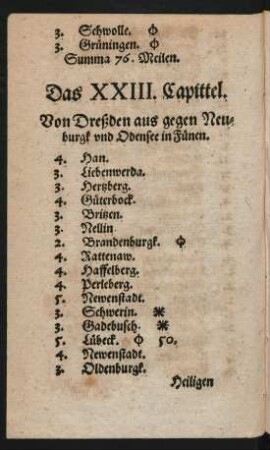 3. Schwolle. ⌽
3. Grüningen. ⌽
Summa 76. Meilen.
Das XXIII. Capittel.
Von Dreßden aus gegen Neu-
burgk vnd Odensee in Fünen.
4. Han.
3. Liebenwerda.
3. Hertzberg.
4. Güterbock.
3. Britzen.
3. Nellin
2. Brandenburgk. ⌽
4. Rattenaw.
4. Haffelberg.
4. Perleberg.
5. Newenstadt.
3. Schwerin. ⁜
3. Gadebusch. ⁜
5. Lübeck. ⌽ 50.
4. Newenstadt.
3. Oldenburgk.
Heiligen